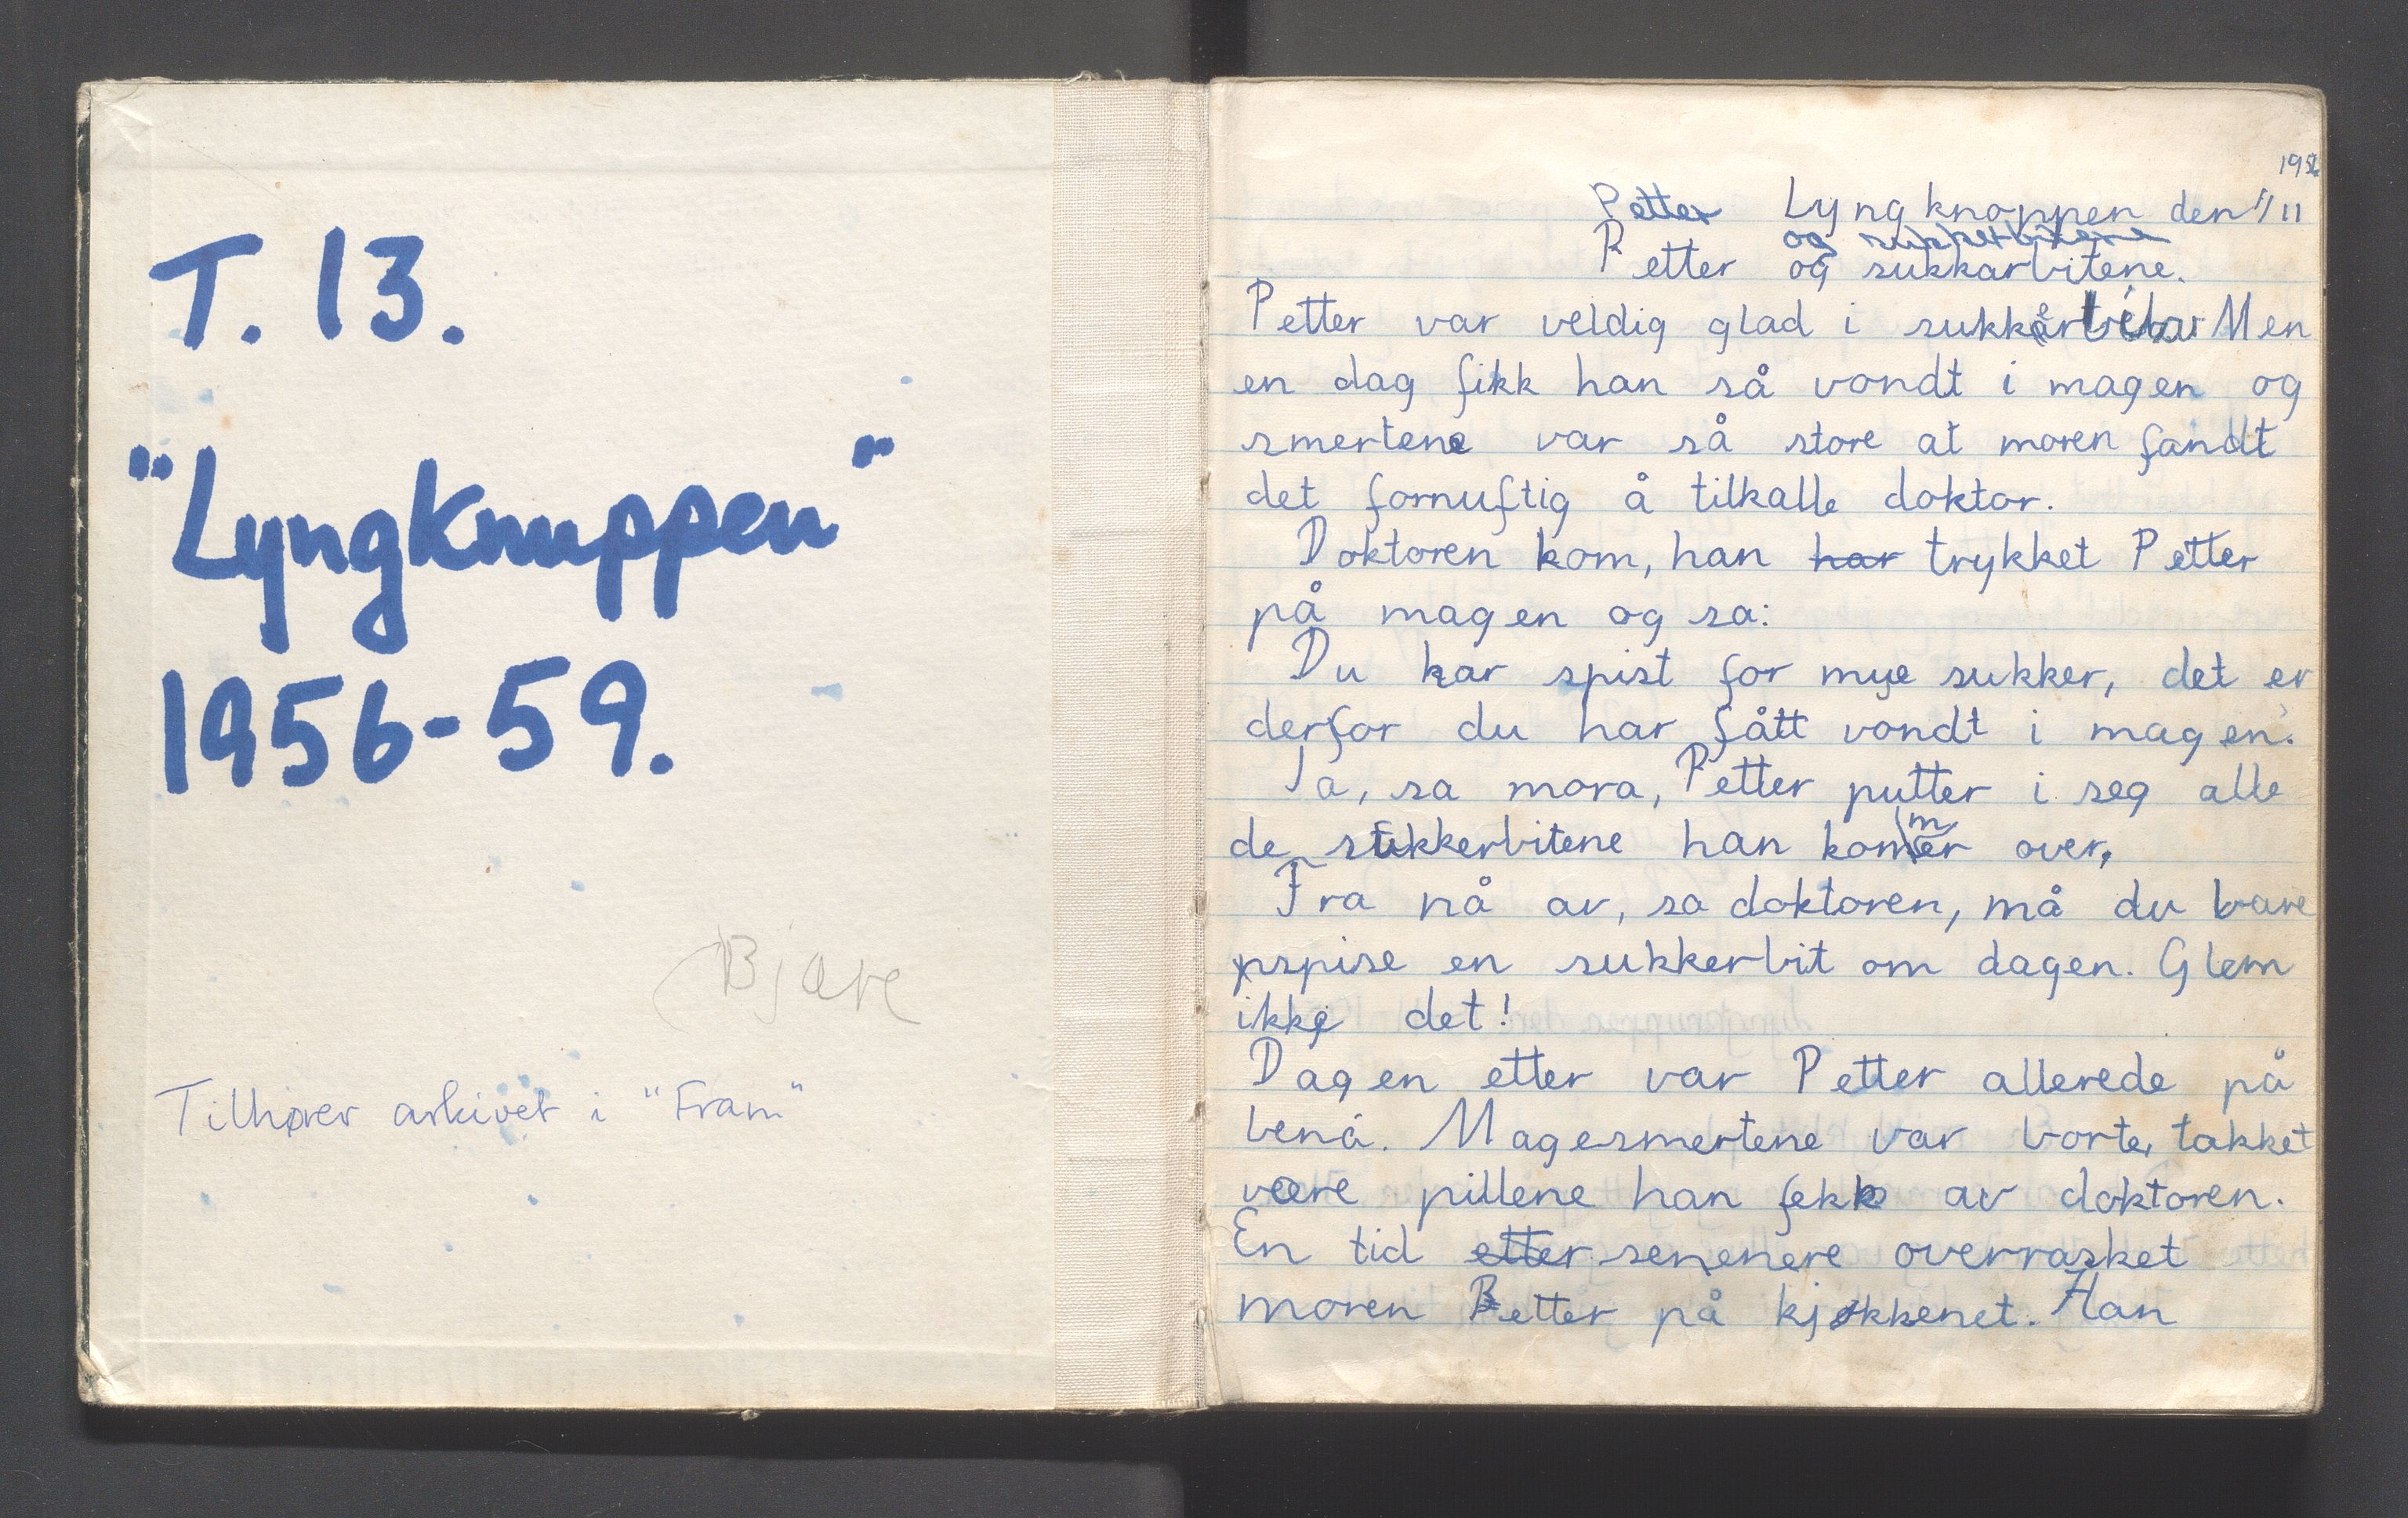 T. 13.
"Lyngknuppen"
1956-59.
Bjare
Tilhører arkivet i "Fram"
1956
Petter Lyngknoppen den 1/11
og sukkerbitene
Petter og sukkarbitene.
Petter var veldig glad i sukkar Men
en dag fikk han så vondt i magen og
smertene var så store at moren fandt
det fornuftig å tilkalle doktor.
Doktoren kom, han har trykket Petter
på magen og sa:
Du har spist for mye sukker, det er
derfor du har fått vondt i magen.
Ja, sa mora, Petter putter i seg alle
de sukkerbitene han kommer over,
Fra nå av, sa doktoren, må du bare
spise en sukkerbit om dagen. Glem
ikke det!
Dagen etter var Petter allerede på
bena. Magesmertene var borte, takket
være pillene han fekk av doktoren.
En tid etter senenere overrasket
moren Petter på kjøkkenet. Han